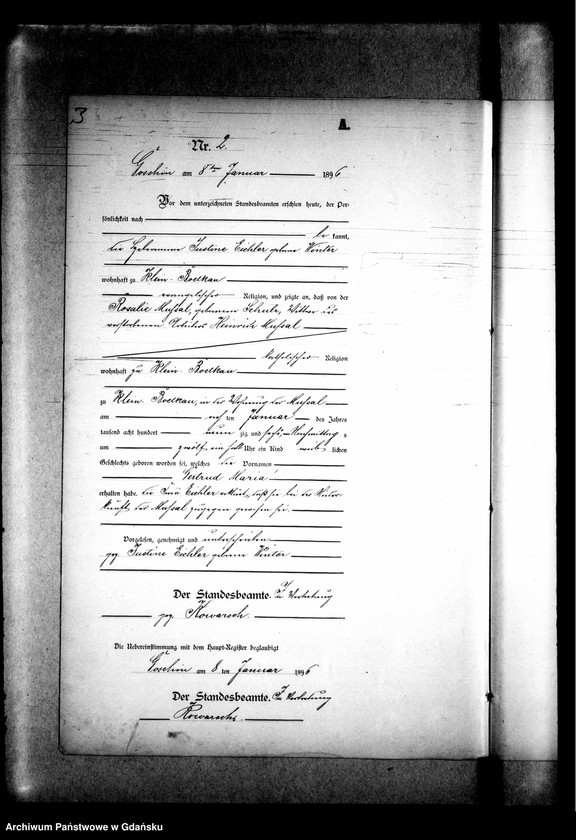 3
A.
Nr. 2.
Goschin am 8ten Januar 1896
Vor dem unterzeichneten Standesbeamten erschien heute, der Per-
sönlichkeit nach
be kannt,
die Hebamme Justine Eichler geborne Winter
wohnhaft zu Klein-Boelkau
evangelischer Religion, und zeigte an, daß von der
Rosalie Mussal, geborenen Schulz, Wittwe des
verstorbenen Arbeiters Heinrich Mussal
katholischer Religion
wohnhaft zu Klein-Boelkau
zu Klein-Boelkau, in der Wohnung der Mussal
am ten Januar des Jahres
tausend acht hundert neun zig und sechs, Nachmittag s
um zwölf ein halb Uhr ein Kind weib lichen
Geschlechts geboren worden sei, welches die Vornamen
Gertrud Maria
erhalten habe. Die Frau Eichler erklärt, daß sie bei der Nieder-
kunft der Mussal zugegen gewesen sei.
Vorgelesen, genehmigt und unterschrieben
gez. Justine Eichler geborne Winter
Der Standesbeamte. In Vertretung
gez. Kowarsch.
Die Uebereinstimmung mit dem Haupt-Register beglaubigt
Goschin am 8 ten Januar 1896
Der Standesbeamte. In Vertretung
Kowarsch.
Archiwum Państwowe w Gdańsku